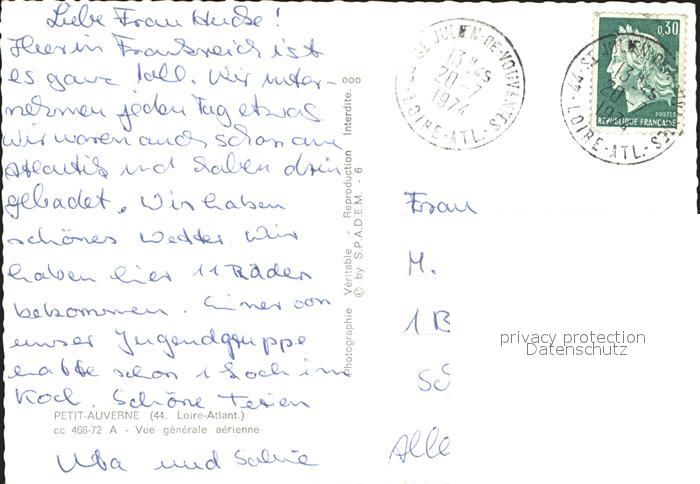 Liebe Frau Hucke!
Hier in Frankreich ist
es ganz toll. Wir unter-
nehmen jeden Tag etwas.
Wir waren auch schon am
Atlantik und haben drin
gebadet. Wir haben
schönes Wetter. Wir
haben hier 11 Räder
bekommen. Einer von
unser Jugendgruppe
hatte schon 1 Loch im
Kopf. Schöne Ferien
PETIT-AUVERNE (44. Loire-Atlant.)
cc 468-72 A - Vue générale aérienne
Uta und
Photographie Véritable - Reproduction Interdite.
© by S.P.A.D.E.M. - 6
44-ST JULIEN-DE-VOUVANTES
13 H 45
20-7
1974
LOIRE-ATL.
0,30
POSTES
REPUBLIQUE FRANCAISE
44-ST JULIEN-DE-VOUVANTES
13 H 45
20
1974
LOIRE-ATL.
Frau
M.
1 B
privacy protection
Datenschutz
Alle